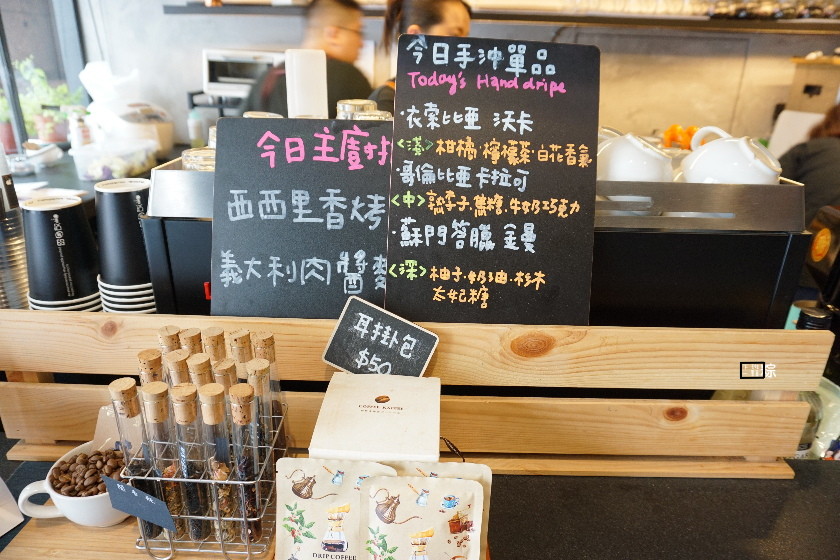 今日主廚推
西西里香烤
義大利肉醬麥
今日手沖單品
Today's Handdripe
·衣索比亞 沃卡
<淺>柑橘·檸檬茶·白花香氣
·哥倫比亞卡拉可
<中>熟李子.焦糖.牛奶巧克力
·蘇門答臘 金曼
<深>柚子·奶油·杉木
太妃糖
耳掛包
$50
COFFEE KAISHI
DRIP COFFEE